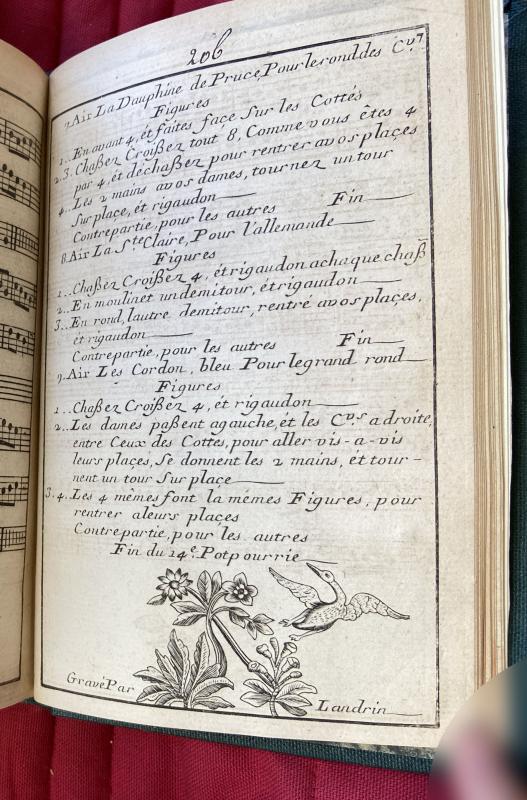 206
7. Air La Dauphine de Pruce, Pour le rond des C.vrs
Figures
1.. En avant 4, ét faites face Sur les Cottés
2. 3. Chaßez Croißez tout 8, Comme vous êtes 4
par 4, ét déchaßez pour rentrer avos plaçes
4.. Les 2 mains avos dames, tournez un tour
Sur plaçe, ét rigaudon
Contrepartie, pour les autres Fin
8. Air La S.te Claire, Pour l'allemande
Figures
1.. Chaßez Croißez 4, ét rigaudon achaque chaß
2.. En moulinet un demi tour, ét rigaudon
3.. En rond, lautre demi tour, rentré avos plaçes,
ét rigaudon
Contrepartie, pour les autres Fin
9. Air Les Cordon, bleu Pour le grand rond
Figures
1.. Chaßez Croißez 4, ét rigaudon
2.. Les dames paßent agauche, ét les C.vrs adroite,
entre Ceux des Cottés, pour aller vis-a-vis
leurs plaçes, Se donnent les 2 mains, ét tour-
nent un tour Sur plaçe
3. 4.. Les 4 mêmes font la mêmes Figures, pour
rentrer aleurs plaçes
Contrepartie, pour les autres
Fin du 14.e Potpourrie
Gravé Par Landrin